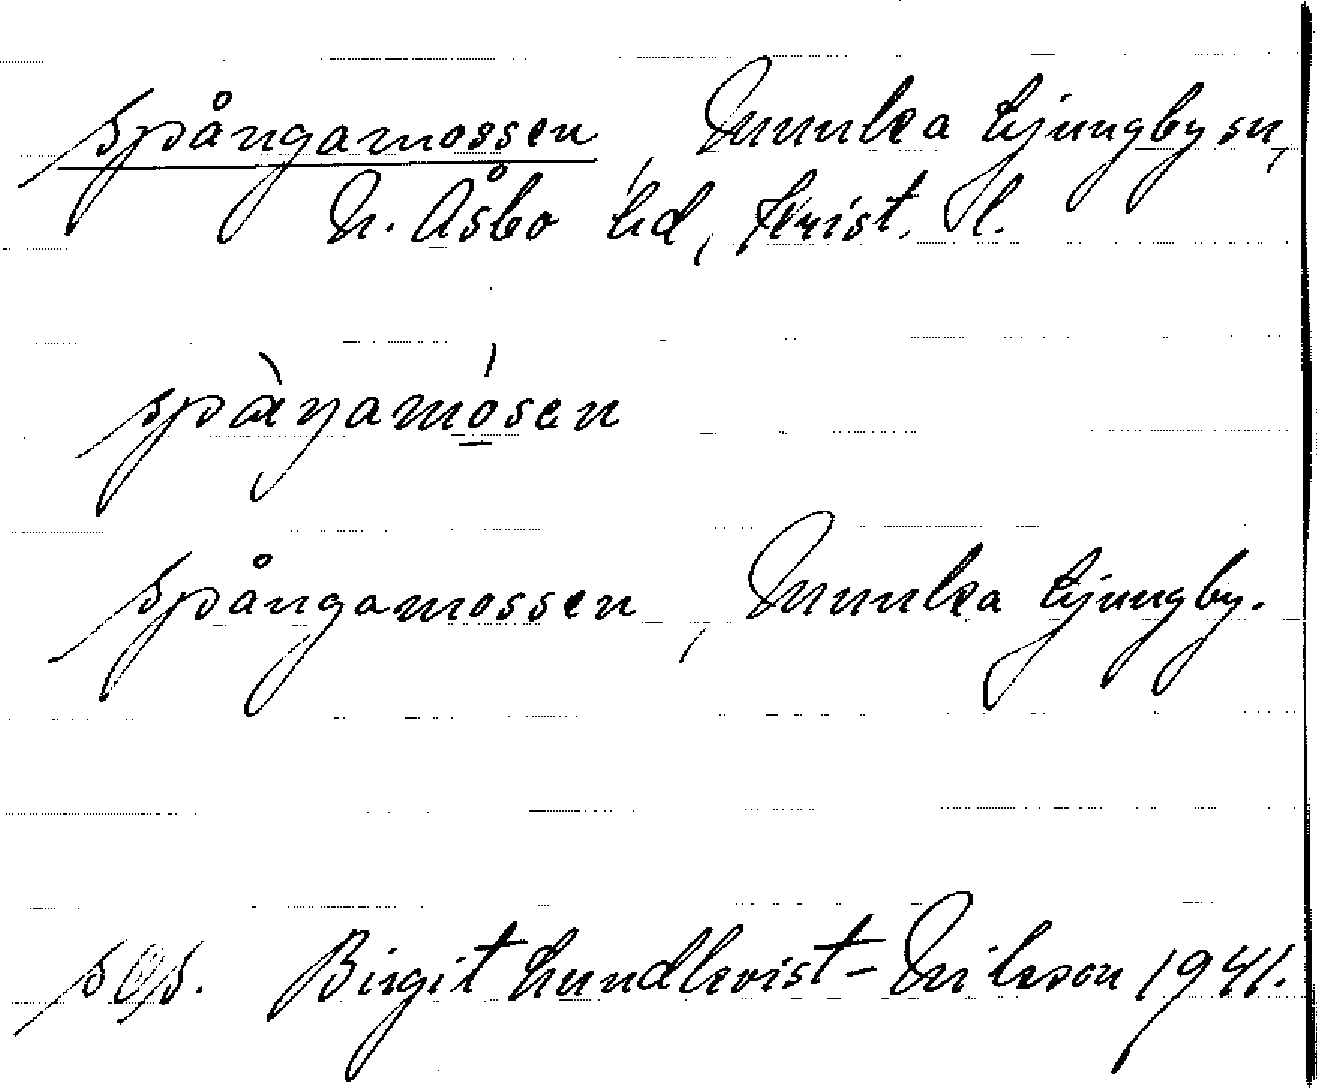 Spångamossen, Munka Ljungby sn,
N. Åsbo hd, Krist. l.
spàŋamósen
Spångamossen, Munka Ljungby.
Birgit Lundkvist-Nilsson 1941.